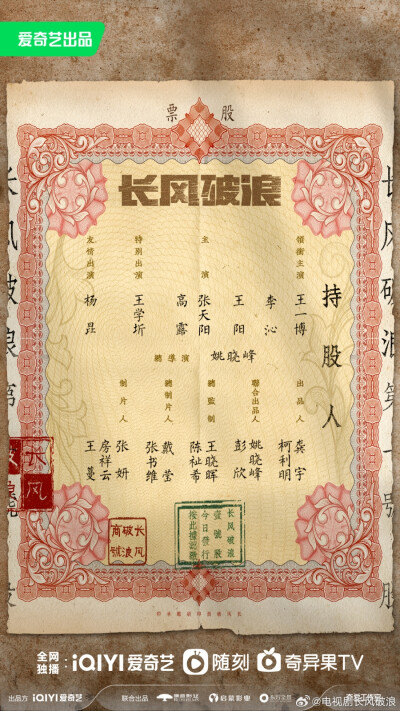 爱奇艺出品
股票
长风破浪
持股人
領銜主演
王一博
李沁
主演
王阳
张天阳
高露
特别出演
王学圻
友情出演
杨昆
總導演
姚晓峰
出品人
龚宇
柯利明
聯合出品人
姚晓峰
彭欣
總監制
王晓晖
陈祉希
總制片人
戴莹
张书维
制片人
张妍
房祥云
王蔓
长风破浪
壹號股
今日發行
长风
破浪
商號
长风
长风破浪第一号股
长风破浪第
全网独播：iQIYI 爱奇艺 随刻 奇异果TV
出品方 iQIYI 爱奇艺 联合出品
@电视剧长风破浪